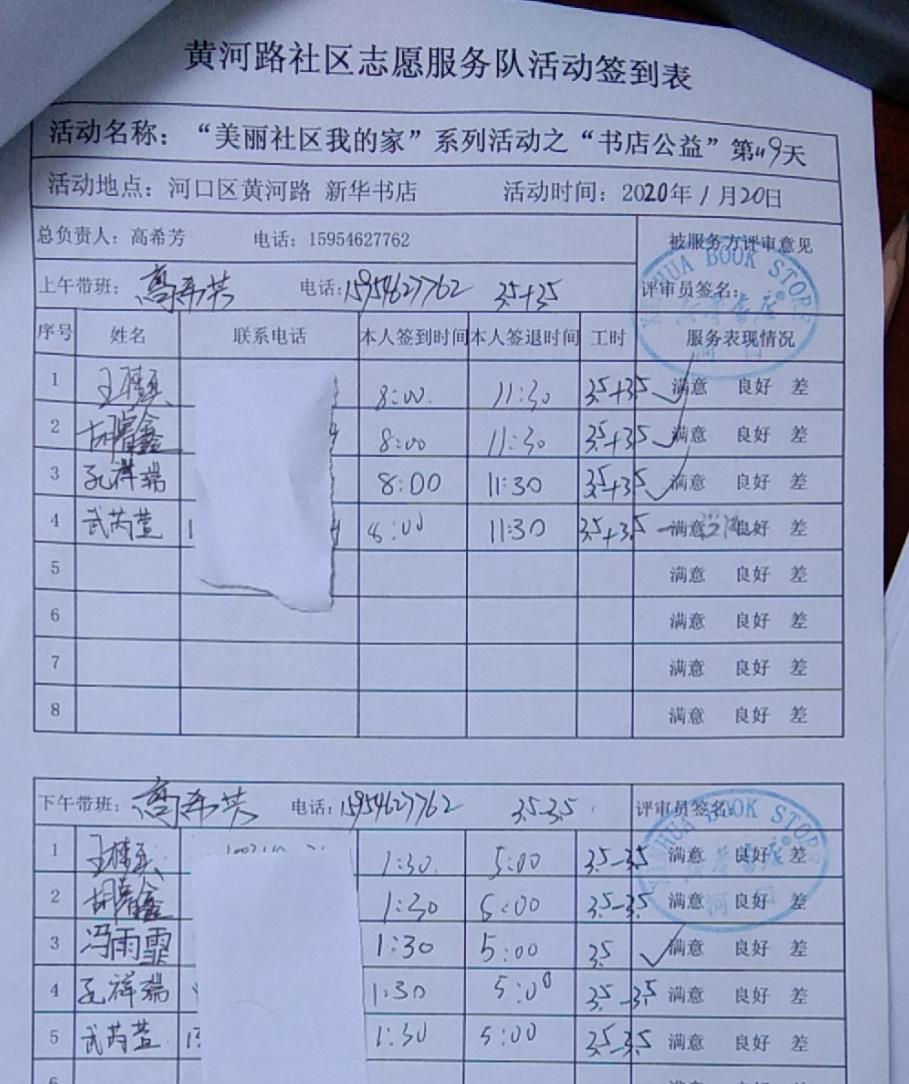 黄河路社区志愿服务队活动签到表
活动名称：“美丽社区我的家”系列活动之“书店公益”第49天
活动地点：河口区黄河路 新华书店 活动时间：2020年1月20日
总负责人：高希芳 电话：15954627762 被服务方评审意见
上午带班：高希芳 电话：15954627762 3.5+3.5 评审员签名：
XINHUA BOOK STORE
新华书店
河口
序号 姓名 联系电话 本人签到时间 本人签退时间 工时 服务表现情况
1 8:00 11:30 3.5+3.5 ✓ 满意 良好 差
2 胡睿鑫 8:00 11:30 3.5+3.5 ✓ 满意 良好 差
3 孔祥瑞 8:00 11:30 3.5+3.5 ✓ 满意 良好 差
4 武芮萱 8:00 11:30 3.5+3.5 满意 良好 差
5 满意 良好 差
6 满意 良好 差
7 满意 良好 差
8 满意 良好 差
下午带班：高希芳 电话：15954627762 3.5-3.5 评审员签名：
XINHUA BOOK STORE
新华书店
河口
1 1:30 5:00 3.5-3.5 满意 良好 差
2 胡睿鑫 1:30 5:00 3.5-3.5 满意 良好 差
3 冯雨霏 1:30 5:00 3.5 ✓ 满意 良好 差
4 孔祥瑞 1:30 5:00 3.5-3.5 满意 良好 差
5 武芮萱 1:30 5:00 3.5-3.5 满意 良好 差